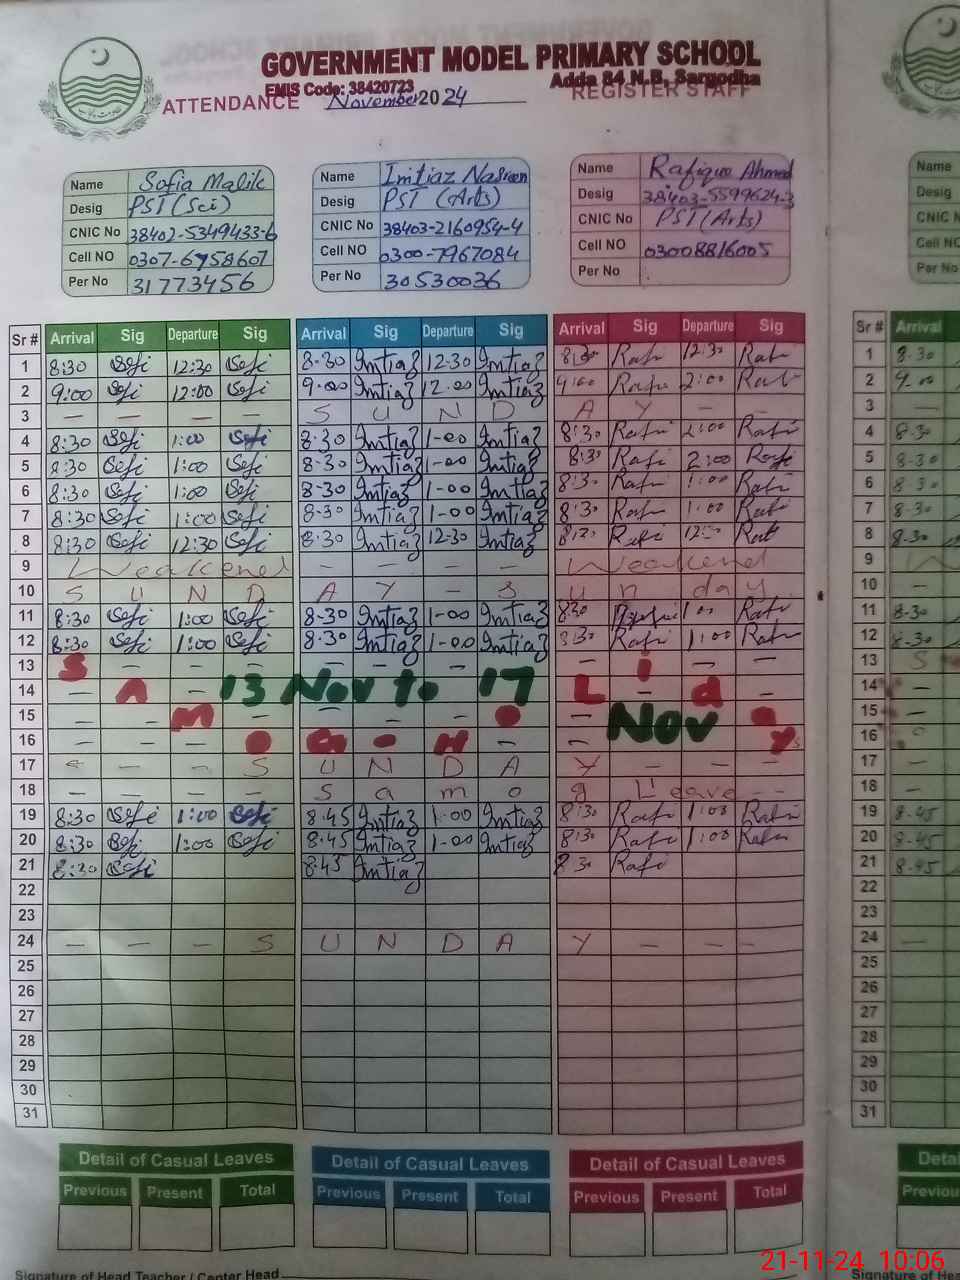 GOVERNMENT MODEL PRIMARY SCHOOL
EMIS Code: 38420723 Adda 84 N.B, Sargodha
ATTENDANCE November 2024 REGISTER STAFF
Name Sofia Malik
Desig PST (Sci)
CNIC No 38402-5349433-6
Cell NO 0307-6958607
Per No 31773456
Name Imtiaz Nasreen
Desig PST (Arts)
CNIC No 38403-2160954-4
Cell NO 0300-7967084
Per No 30530036
Name Rafique Ahmed
Desig 38403-5599624-3
CNIC No PST (Arts)
Cell NO 03008816005
Per No
Name
Desig
CNIC N
Cell NO
Per No
Sr # Arrival Sig Departure Sig Arrival Sig Departure Sig Arrival Sig Departure Sig Sr # Arrival
1 8:30 Sefi 12:30 Sefi 8-30 Imtiaz 12-30 Imtiaz 8:30 Rafi 12:30 Rafi 1 8-30
2 9:00 Sefi 12:00 Sefi 9-00 Imtiaz 12-00 Imtiaz 9:00 Rafi 2:00 Rafi 2 9-00
3 — — — — S U N D A Y — — 3 —
4 8:30 Sefi 1:00 Sefi 8-30 Imtiaz 1-00 Imtiaz 8:30 Rafi 2:00 Rafi 4 8-30
5 8:30 Sefi 1:00 Sefi 8-30 Imtiaz 1-00 Imtiaz 8:30 Rafi 2:00 Rafi 5 8-30
6 8:30 Sefi 1:00 Sefi 8-30 Imtiaz 1-00 Imtiaz 8:30 Rafi 1:00 Rafi 6 8-30
7 8:30 Sefi 1:00 Sefi 8-30 Imtiaz 1-00 Imtiaz 8:30 Rafi 1:00 Rafi 7 8-30
8 8:30 Sefi 12:30 Sefi 8-30 Imtiaz 12-30 Imtiaz 8:30 Rafi 12:30 Rafi 8 8-30
9 Weakend — — — — Weakend 9
10 S U N D A Y — S u n d a y 10 —
11 8:30 Sefi 1:00 Sefi 8-30 Imtiaz 1-00 Imtiaz 8:30 1:00 Rafi 11 8-30
12 8:30 Sefi 1:00 Sefi 8-30 Imtiaz 1-00 Imtiaz 8:30 Rafi 1:00 Rafi 12 8-30
13 S — — — — — — — — i — — 13 S
14 — A — 13 Nov to 17 L — d — 14 —
15 — — M — — — — o — Nov a 15 —
16 — — — o G — H — — y s 16
17 — — — S U N D A Y — — — 17
18 — — — — S a m o g Leave — — 18
19 8:30 Sefi 1:00 Sefi 8:45 Imtiaz 1:00 Imtiaz 8:30 Rafi 1:00 Rafi 19 8-45
20 8:30 Sefi 1:00 Sefi 8:45 Imtiaz 1-00 Imtiaz 8:30 Rafi 1:00 Rafi 20 8-45
21 8:30 Sefi 8:45 Imtiaz 8:30 Rafi 21 8-45
22 22
23 23
24 — — — S U N D A Y — — — 24 —
25 25
26 26
27 27
28 28
29 29
30 30
31 31
Detail of Casual Leaves Detail of Casual Leaves Detail of Casual Leaves Detai
Previous Present Total Previous Present Total Previous Present Total Previou
Signature of Head Teacher / Center Head Signature of He
21-11-24 10:06